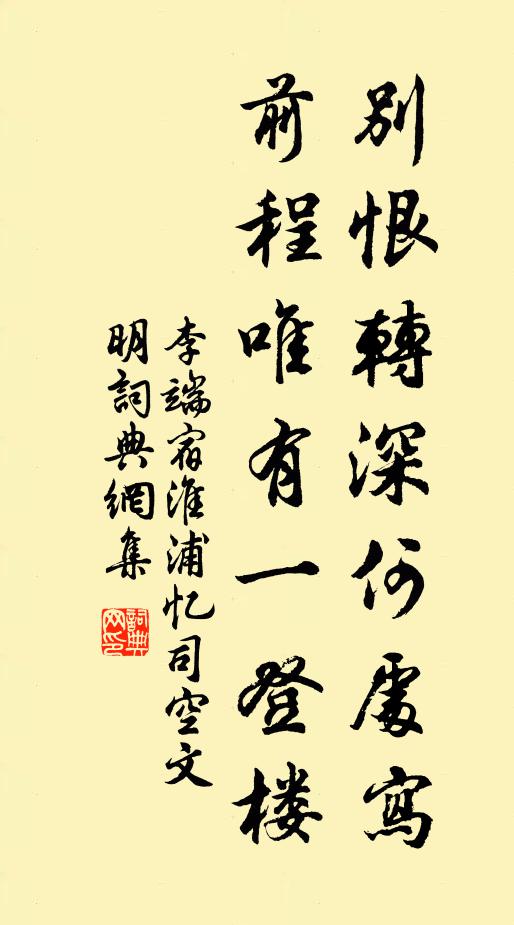 別恨轉深何處寫
前程唯有一登楼
李端宿淮浦忆司空文
明詞典網集
詞典
网印